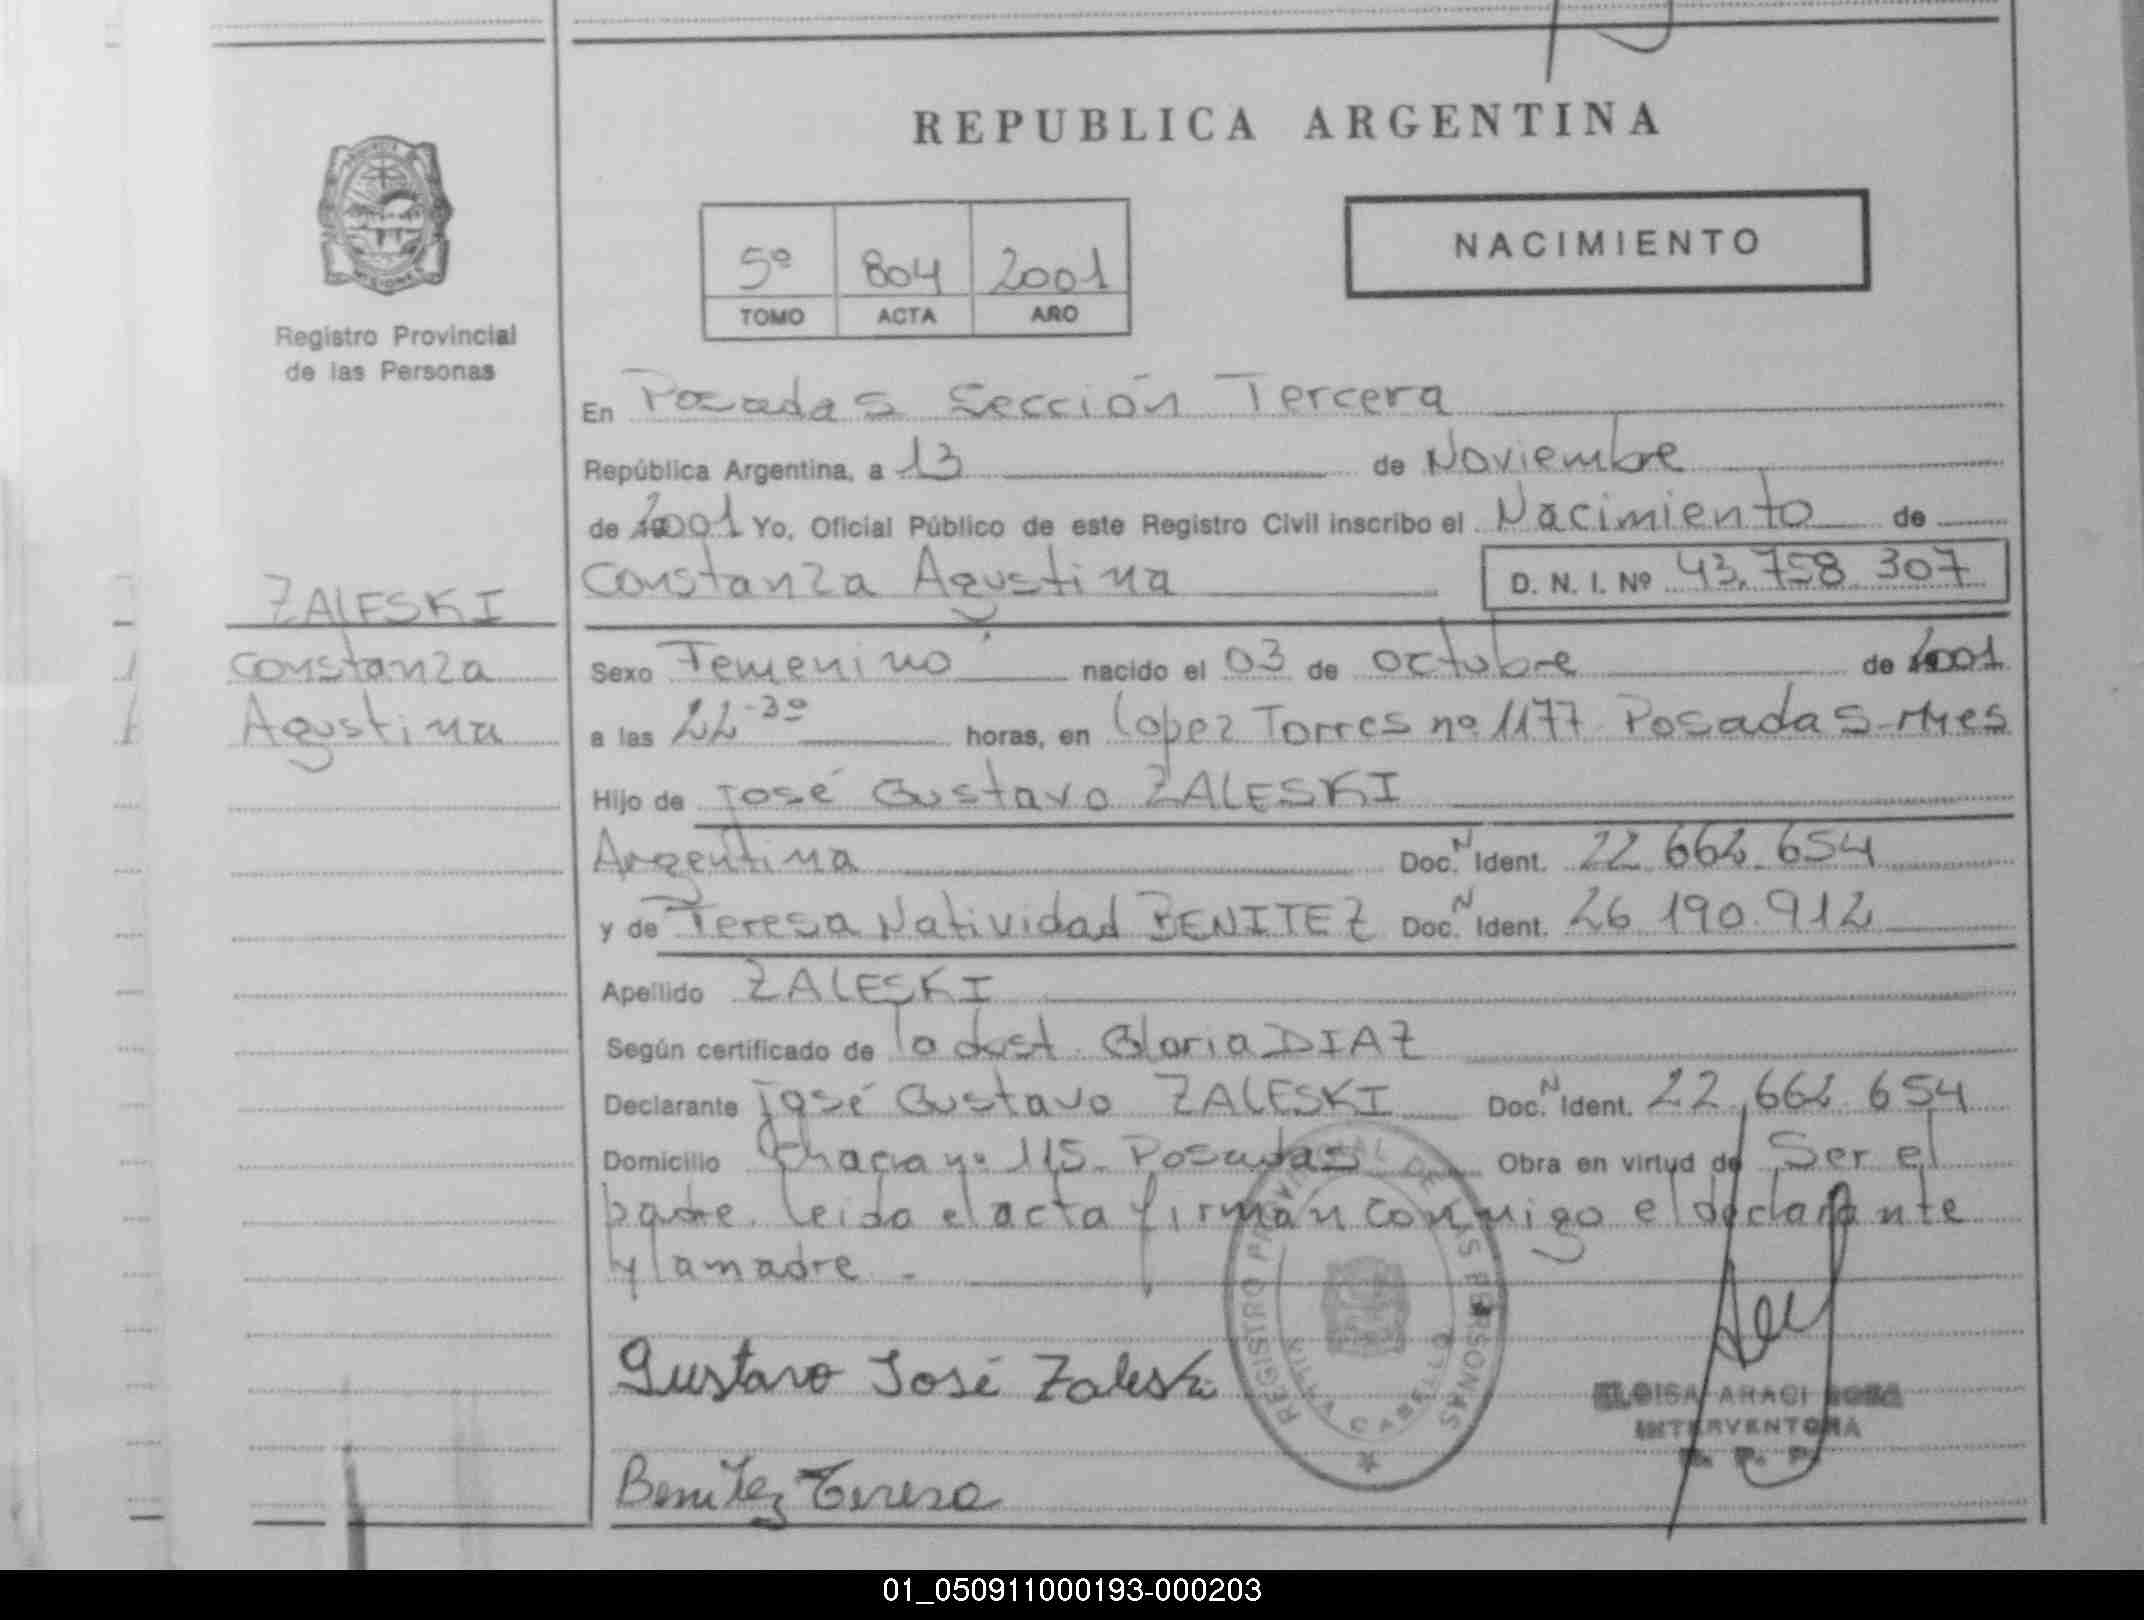 REPUBLICA ARGENTINA
NACIMIENTO
5º 804 2001
TOMO ACTA AÑO
Registro Provincial
de las Personas
En Posadas Sección Tercera
República Argentina, a 13 de Noviembre
de 2001 Yo, Oficial Público de este Registro Civil inscribo el Nacimiento de
Constanza Agustina D. N. I. Nº 43.758.307
ZALESKI
Constanza
Agustina
Sexo Femenino nacido el 03 de octubre de 2001
a las 22-30 horas, en Lopez Torres nº 1177 Posadas-Mnes
Hijo de José Gustavo ZALESKI
Argentina Doc. N Ident. 22.662.654
y de Teresa Natividad BENITEZ Doc. N Ident. 26.190.912
Apellido ZALESKI
Según certificado de la obst. Gloria DIAZ
Declarante José Gustavo ZALESKI Doc. N Ident. 22.662.654
Domicilio nº 115 Posadas Obra en virtud de Ser el
padre. leida el acta firman conmigo el declarante
y la madre.-
Gustavo José Zaleski
Benitez Teresa
REGISTRO PROVINCIAL DE LAS PERSONAS
VILLA CABELLO
ELOISA ARACI
INTERVENTORA
R. P. P.
01_050911000193-000203